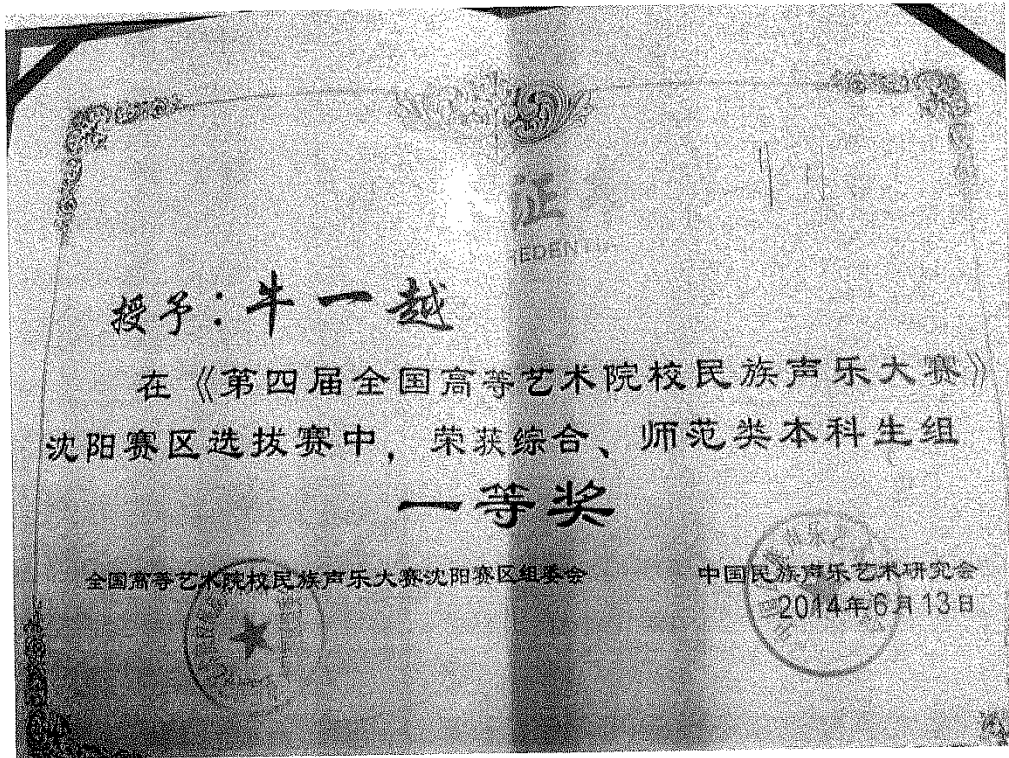 证
授予：牛一越
在《第四届全国高等艺术院校民族声乐大赛》
沈阳赛区选拔赛中，荣获综合、师范类本科生组
一等奖
全国高等艺术院校民族声乐大赛沈阳赛区组委会
中国民族声乐艺术研究会
2014年6月13日